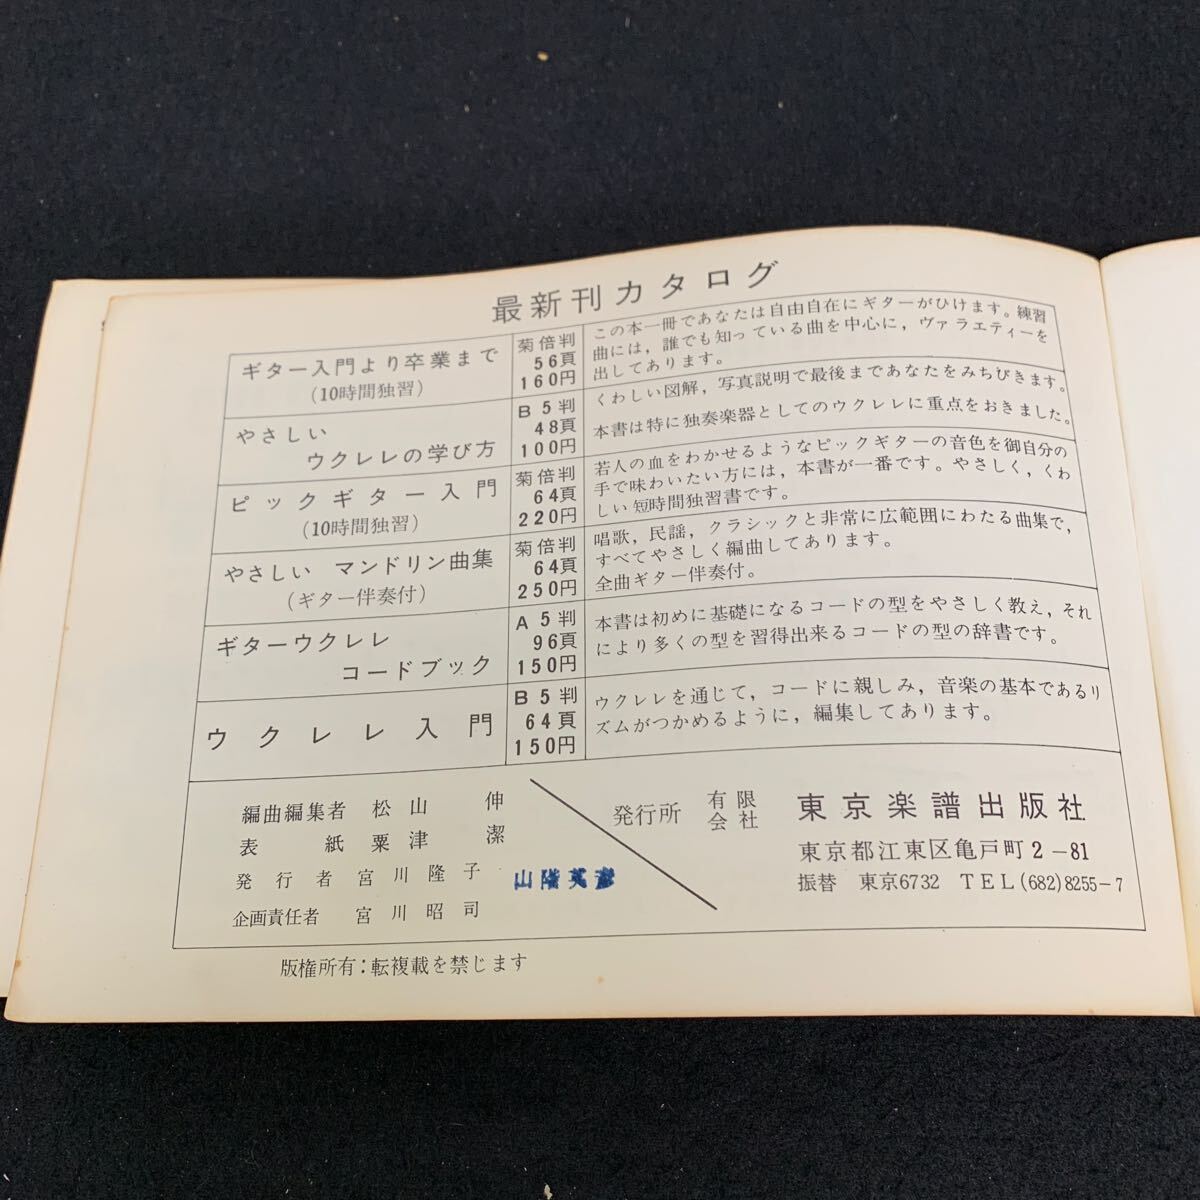 最新刊カタログ
ギター入門より卒業まで
(10時間独習)
菊倍判
56頁
160円
この本一冊であなたは自由自在にギターがひけます。練習
曲には，誰でも知っている曲を中心に，ヴァラエティーを
出してあります。
やさしい
ウクレレの学び方
B5判
48頁
100円
くわしい図解，写真説明で最後まであなたをみちびきます。
本書は特に独奏楽器としてのウクレレに重点をおきました。
ピックギター入門
(10時間独習)
菊倍判
64頁
220円
若人の血をわかせるようなピックギターの音色を御自分の
手で味わいたい方には，本書が一番です。やさしく，くわ
しい短時間独習書です。
やさしい マンドリン曲集
(ギター伴奏付)
菊倍判
64頁
250円
唱歌，民謡，クラシックと非常に広範囲にわたる曲集で，
すべてやさしく編曲してあります。
全曲ギター伴奏付。
ギターウクレレ
コードブック
A5判
96頁
150円
本書は初めに基礎になるコードの型をやさしく教え，それ
により多くの型を習得出来るコードの型の辞書です。
ウクレレ入門
B5判
64頁
150円
ウクレレを通じて，コードに親しみ，音楽の基本であるリ
ズムがつかめるように，編集してあります。
編曲編集者 松山 伸
表紙 粟津 潔
発行者 宮川隆子
企画責任者 宮川昭司
発行所 有限会社 東京楽譜出版社
東京都江東区亀戸町2-81
振替 東京6732 TEL(682)8255-7
版権所有：転複載を禁じます